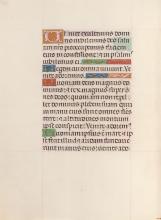 Venite exultemus do
mino iubilemus deo salu
tari nostro preoccupemus faciem
eius in confessione et in psalmis
iubilemus ei
Quoniam deus magnus do
minus et rex magnus super om
nes deos quoniam non repel
let dominus plebem suam quia
in manu eius sunt omnes fines
terre et altitudines montium
ipse conspicit Venite
Quoniam ipsius est mare et ipse
fecit illud et aridam fundaue
runt manus eius venite ado